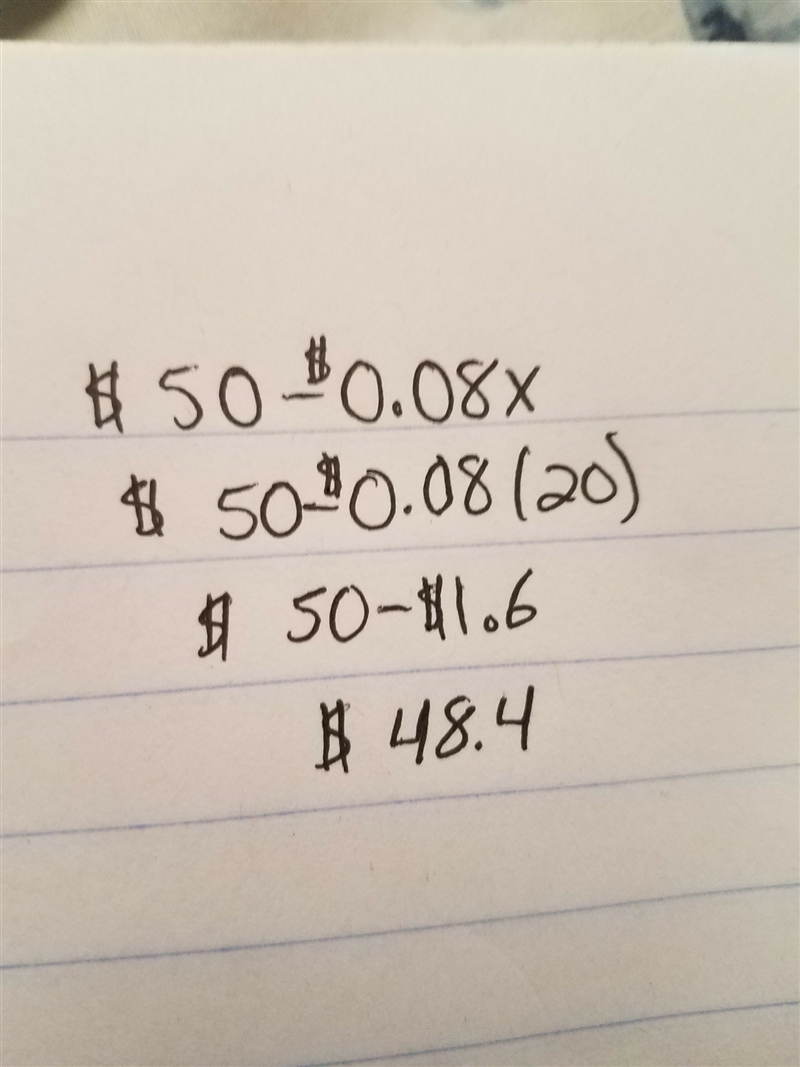 $ 50 - $0.08x
$ 50 - $0.08(20)
$ 50 - $1.6
$ 48.4